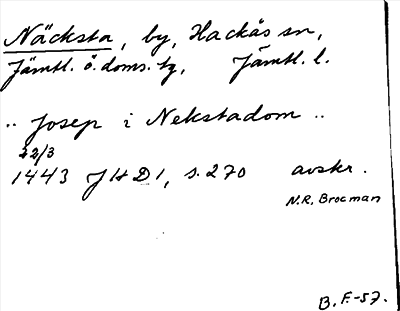 Näcksta, by, Hackås sn,
Jämtl. ö. doms. tg, Jämtl. l.
"Josep i Nekstadom"
22/3
1443 JHD 1, s. 270 avskr.
N.R. Brocman
B. F.-57.